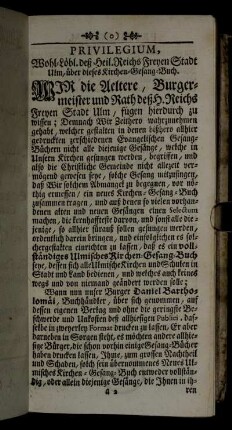 (o)
PRIVILEGIUM,
Wohl-Löbl. deß Heil. Reichs Freyen Stadt
Ulm, über dieses Kirchen-Gesang-Buch.
WIR die Aeltere, Burger-
meister und Rath deß H. Reichs
Freyen Stadt Ulm, fügen hierdurch zu
wissen; Demnach Wir Zeithero wahrgenehmen
gehabt, welcher gestalten in denen bißhero allhier
gedruckten verschiedenen Evangelischen Gesang-
Büchern nicht alle diejenige Gesänge, welche in
Unsern Kirchen gesungen werden, begriffen, und
also die Christliche Gemeinde nicht allezeit ver-
mögend gewesen seye, solche Gesäng mitzusingen,
daß Wir solchem Abmangel zu begegnen, vor nö-
thig ermessen, ein neues Kirchen-Gesang-Buch
zusammen tragen, und auß denen so vielen vorhan-
denen alten und neuen Gesängen einen Selectum
machen, die kernhaffteste davon, und zumal alle die-
jenige, so allhier sonst sollen gesungen werden,
ordentlich darein bringen, und
einrichten zu lassen, daß es ein voll-
ständiges Ulmisches Kirchen-Gesang-Buch
seye, dessen sich alle Ulmische Kirchen und Schulen in
Stadt und Land bedienen, und welches auch keines
wegs und von niemand geändert werden solle;
Wann nun unser Burger Daniel Bartho-
lomäi, Buchhändler, über sich genommen, auf
dessen eigenen Verlag und ohne die geringste Be-
schwerde und Unkosten deß allhiesigen Publici, das-
selbe in zweyerley Format drucken zu lassen, Er aber
darneben in Sorgen stehe, es möchten andere allhie-
sige Burger, die schon vorhin einige Gesang-Bücher
haben drucken lassen, Ihme, zum grossen Nachtheil
und Schaden, solch sein übernommenes Neues Ul-
misches Kirchen-Gesang-Buch entweder vollstän-
dig, oder allein diejenige Gesänge, die Ihnen in ih-
a 2 ren